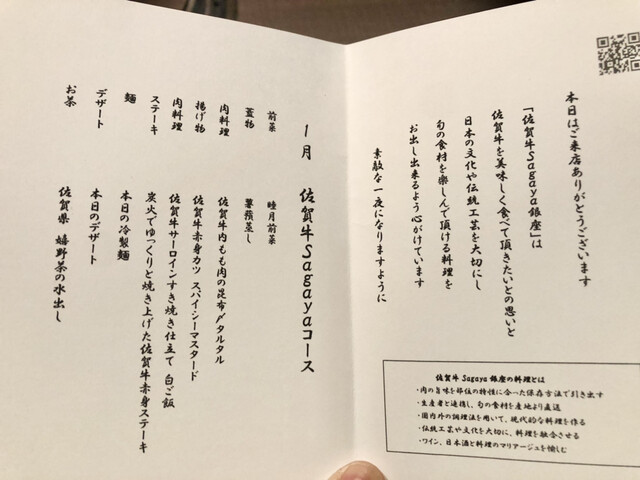 本日はご来店ありがとうございます
「佐賀牛Sagaya銀座」は
佐賀牛を美味しく食べて頂きたいとの思いと
日本の文化や伝統工芸を大切にし
旬の食材を楽しんで頂ける料理を
お出し出来るよう心がけています
素敵な一夜になりますように
佐賀牛 Sagaya 銀座の料理とは
・肉の旨味を部位の特性に合った保存方法で引き出す
・生産者と連携し、旬の食材を産地より直送
・国内外の調理法を用いて、現代的な料理を作る
・伝統工芸や文化を大切に、料理を融合させる
・ワイン、日本酒と料理のマリアージュを愉しむ
1月 佐賀牛Sagayaコース
前菜 睦月前菜
蓋物 薯蕷蒸し
肉料理 佐賀牛内もも肉の昆布〆タルタル
揚げ物 佐賀牛赤身カツ スパイシーマスタード
肉料理 佐賀牛サーロインすき焼き仕立て 白ご飯
ステーキ 炭火でゆっくりと焼き上げた佐賀牛赤身ステーキ
麺 本日の冷製麺
デザート 本日のデザート
お茶 佐賀県 嬉野茶の水出し